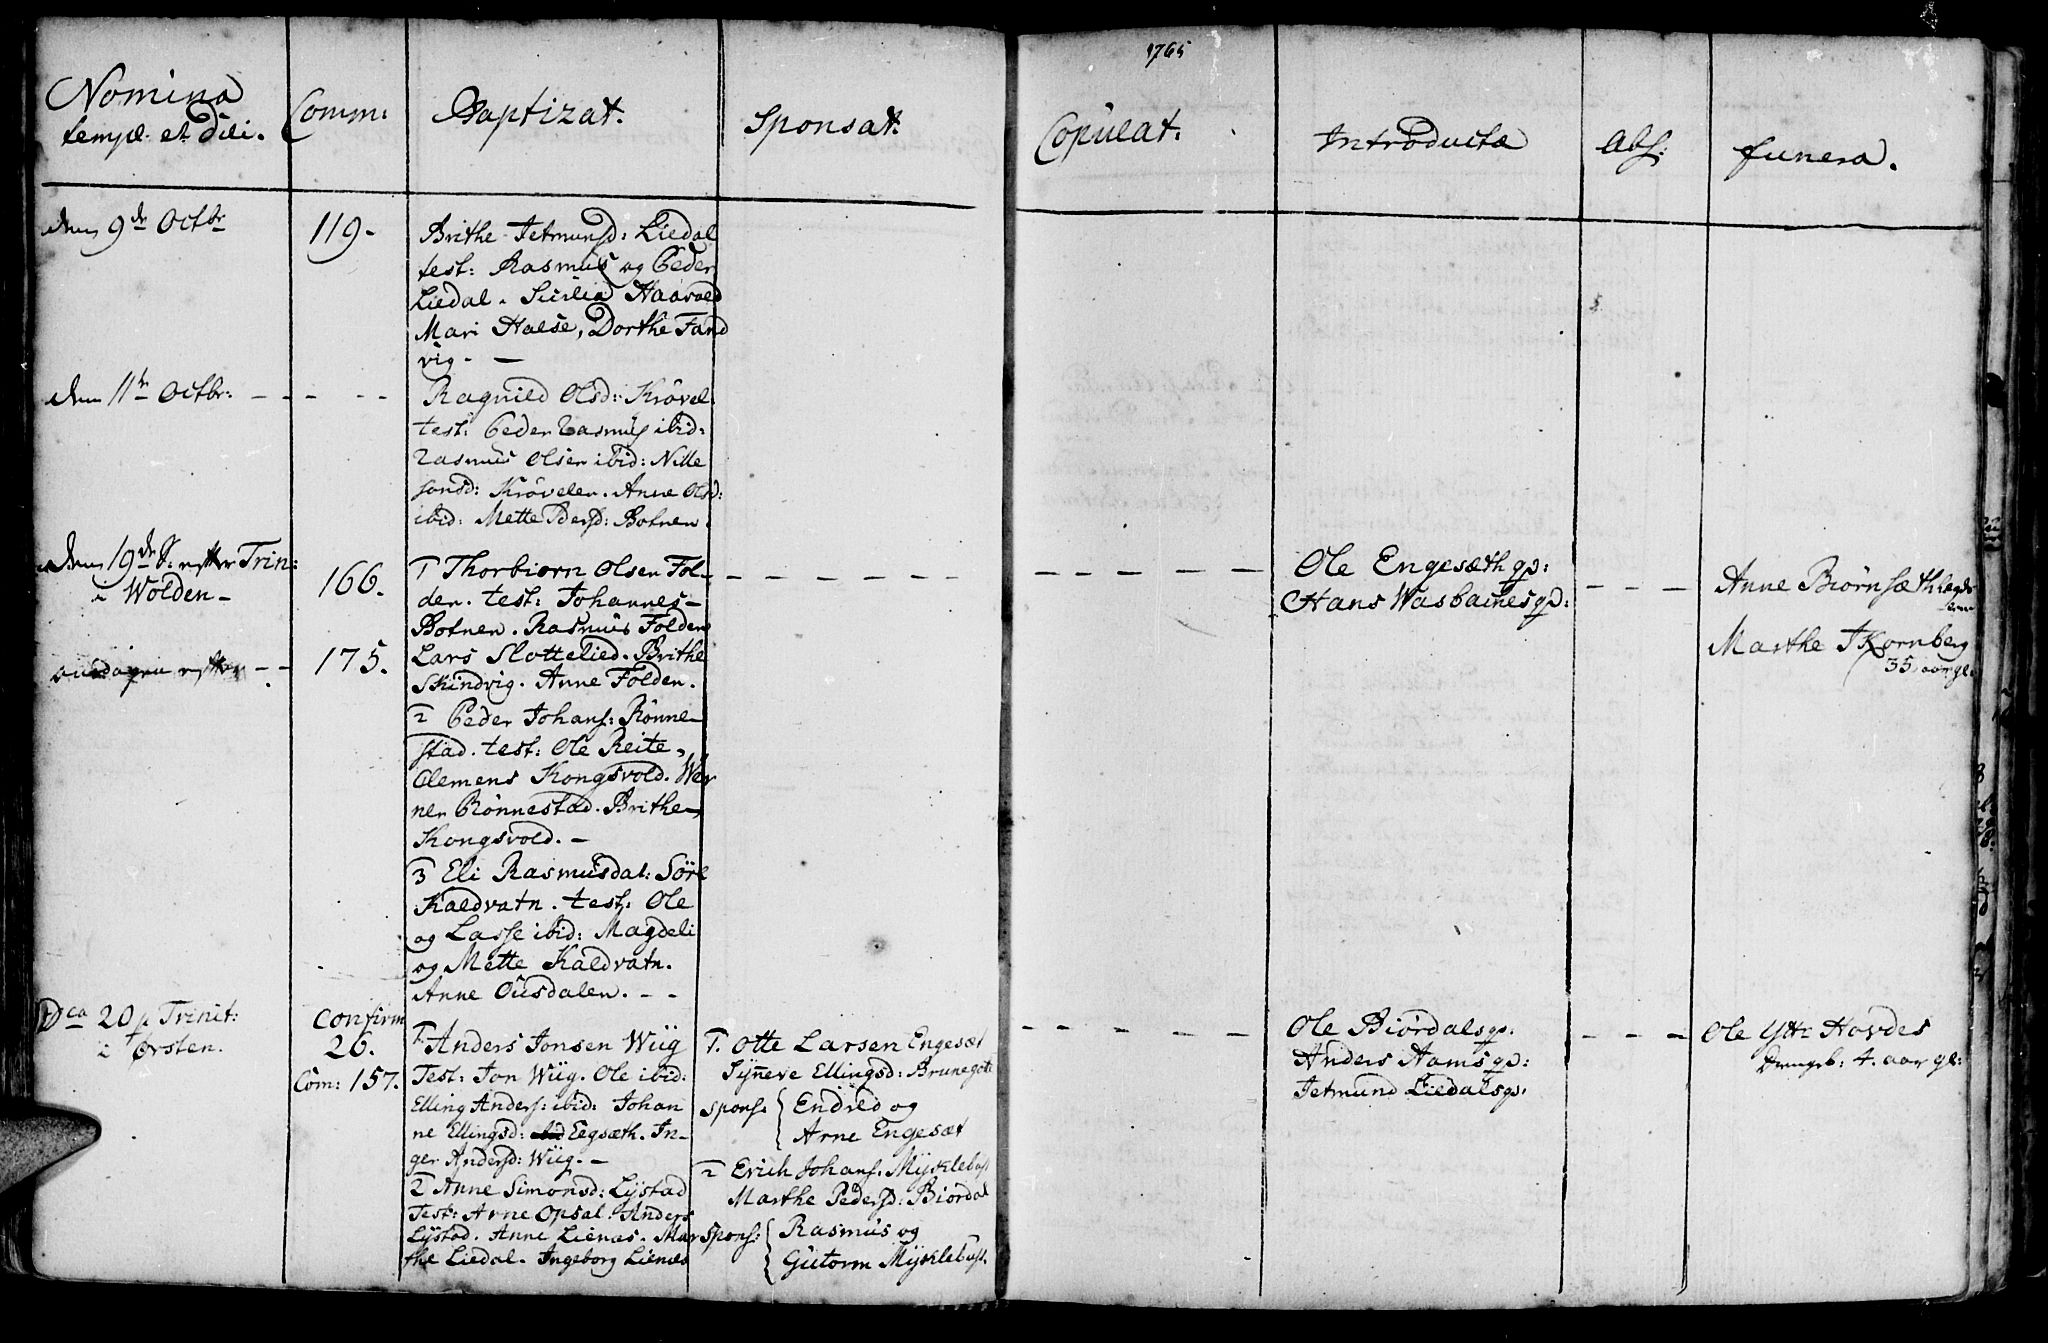 1765
Nomina
templ: et Diei.
Comm:
Baptizat.
Sponsat:
Copulat:
Introducta
Abs:
funera.
den 9de Octbr
119.
Brithe Jetmunsd: Liedal
test: Rasmus og Peder
Liedal. Sicilia Haavold
Mari Halse, Dorthe Fand
vig. —
den 11te Octbr: - - - -
Ragnild Olsd: Krövel
test: Peder Rasmus ibid:
Rasmus Olsen ibid: Nille
Jonsd: Krövelen. Anne Olsd:
ibid: Mette Pdersd: Botnen.
den 19de S: efter Trin:
i Wolden -
166.
1 Thorbiorn Olsen Fol-
den. test: Johannes
Botnen. Rasmus Folden
onsdagen efter - -
175.
Lars Slottelied. Brithe
Skindvig. Anne Folden.
2 Peder Johans: Rönne-
stad. test: Ole Reite,
Clemens Kongsvold. Wer
ner Rönnestad. Brithe
Kongsvold. —
3 Eli Rasmusdal: Söre
Kaldvatn. test: Ole
og Lasse ibid: Magdeli
og Mette Kaldvatn.
Anne Ousdalen. - -
Ole Engesæth gs:
Hans Wasbaknes gs:
Anne Biörnsæth lægds
lem
Marthe Kornberg
35 aar gl.
Dca 20 p Trinit:
i Ørsten.
Confirm
26.
Com: 157.
1 Anders Jonsen Wiig
Test: Jon Wiig. Ole ibid:
Elling Anders: ibid: Johan
ne Ellingsd: Eegsæth. In-
ger Andersd: Wiig. —
2 Anne Simonsd: Lystad
Test: Arne Opsal. Anders
Lystad. Anne Lienæs. Mar
the Liedal. Ingeborg Lienæs
1. Otte Larsen Engesæt
Synneve Ellingsd: Brunegote
spons: { Endred og
Arne Engesæt
2 Erich Johans. Myklebust
Marthe Pedersd: Biordal
spons: { Rasmus og
Gutorm Myklebust.
Ole Biördals gs:
Anders Aams gs:
Jetmund Liedals gs:
Ole Ytr Hovdes
Drengeb: 4. aar gl: